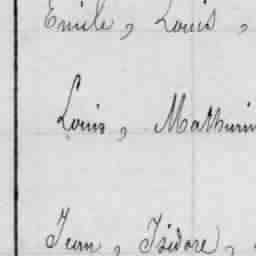 Emile, Louis,
Louis, Mathurin
Jean, Isidore,